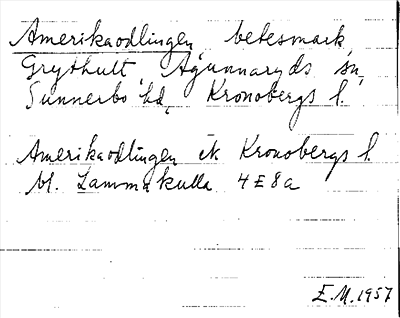 Amerikaodlingen, betesmark,
Grythult, Agunnaryds sn,
Sunnerbo hd, Kronobergs l.
Amerikaodlingen ek Kronobergs l.
bl. Lammakulla 4E8a
E.M. 1957